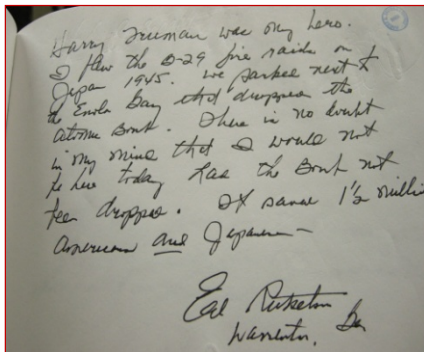 Harry Truman was my hero.
I flew the B-29 fire raids on
Japan 1945. We parked next to
the Enola Gay that dropped the
Atomic Bomb. There is no doubt
in my mind that I would not
be here today had the Bomb not
been dropped. It saved 1½ milli
American and Japanese —
Ed
Warrenton,